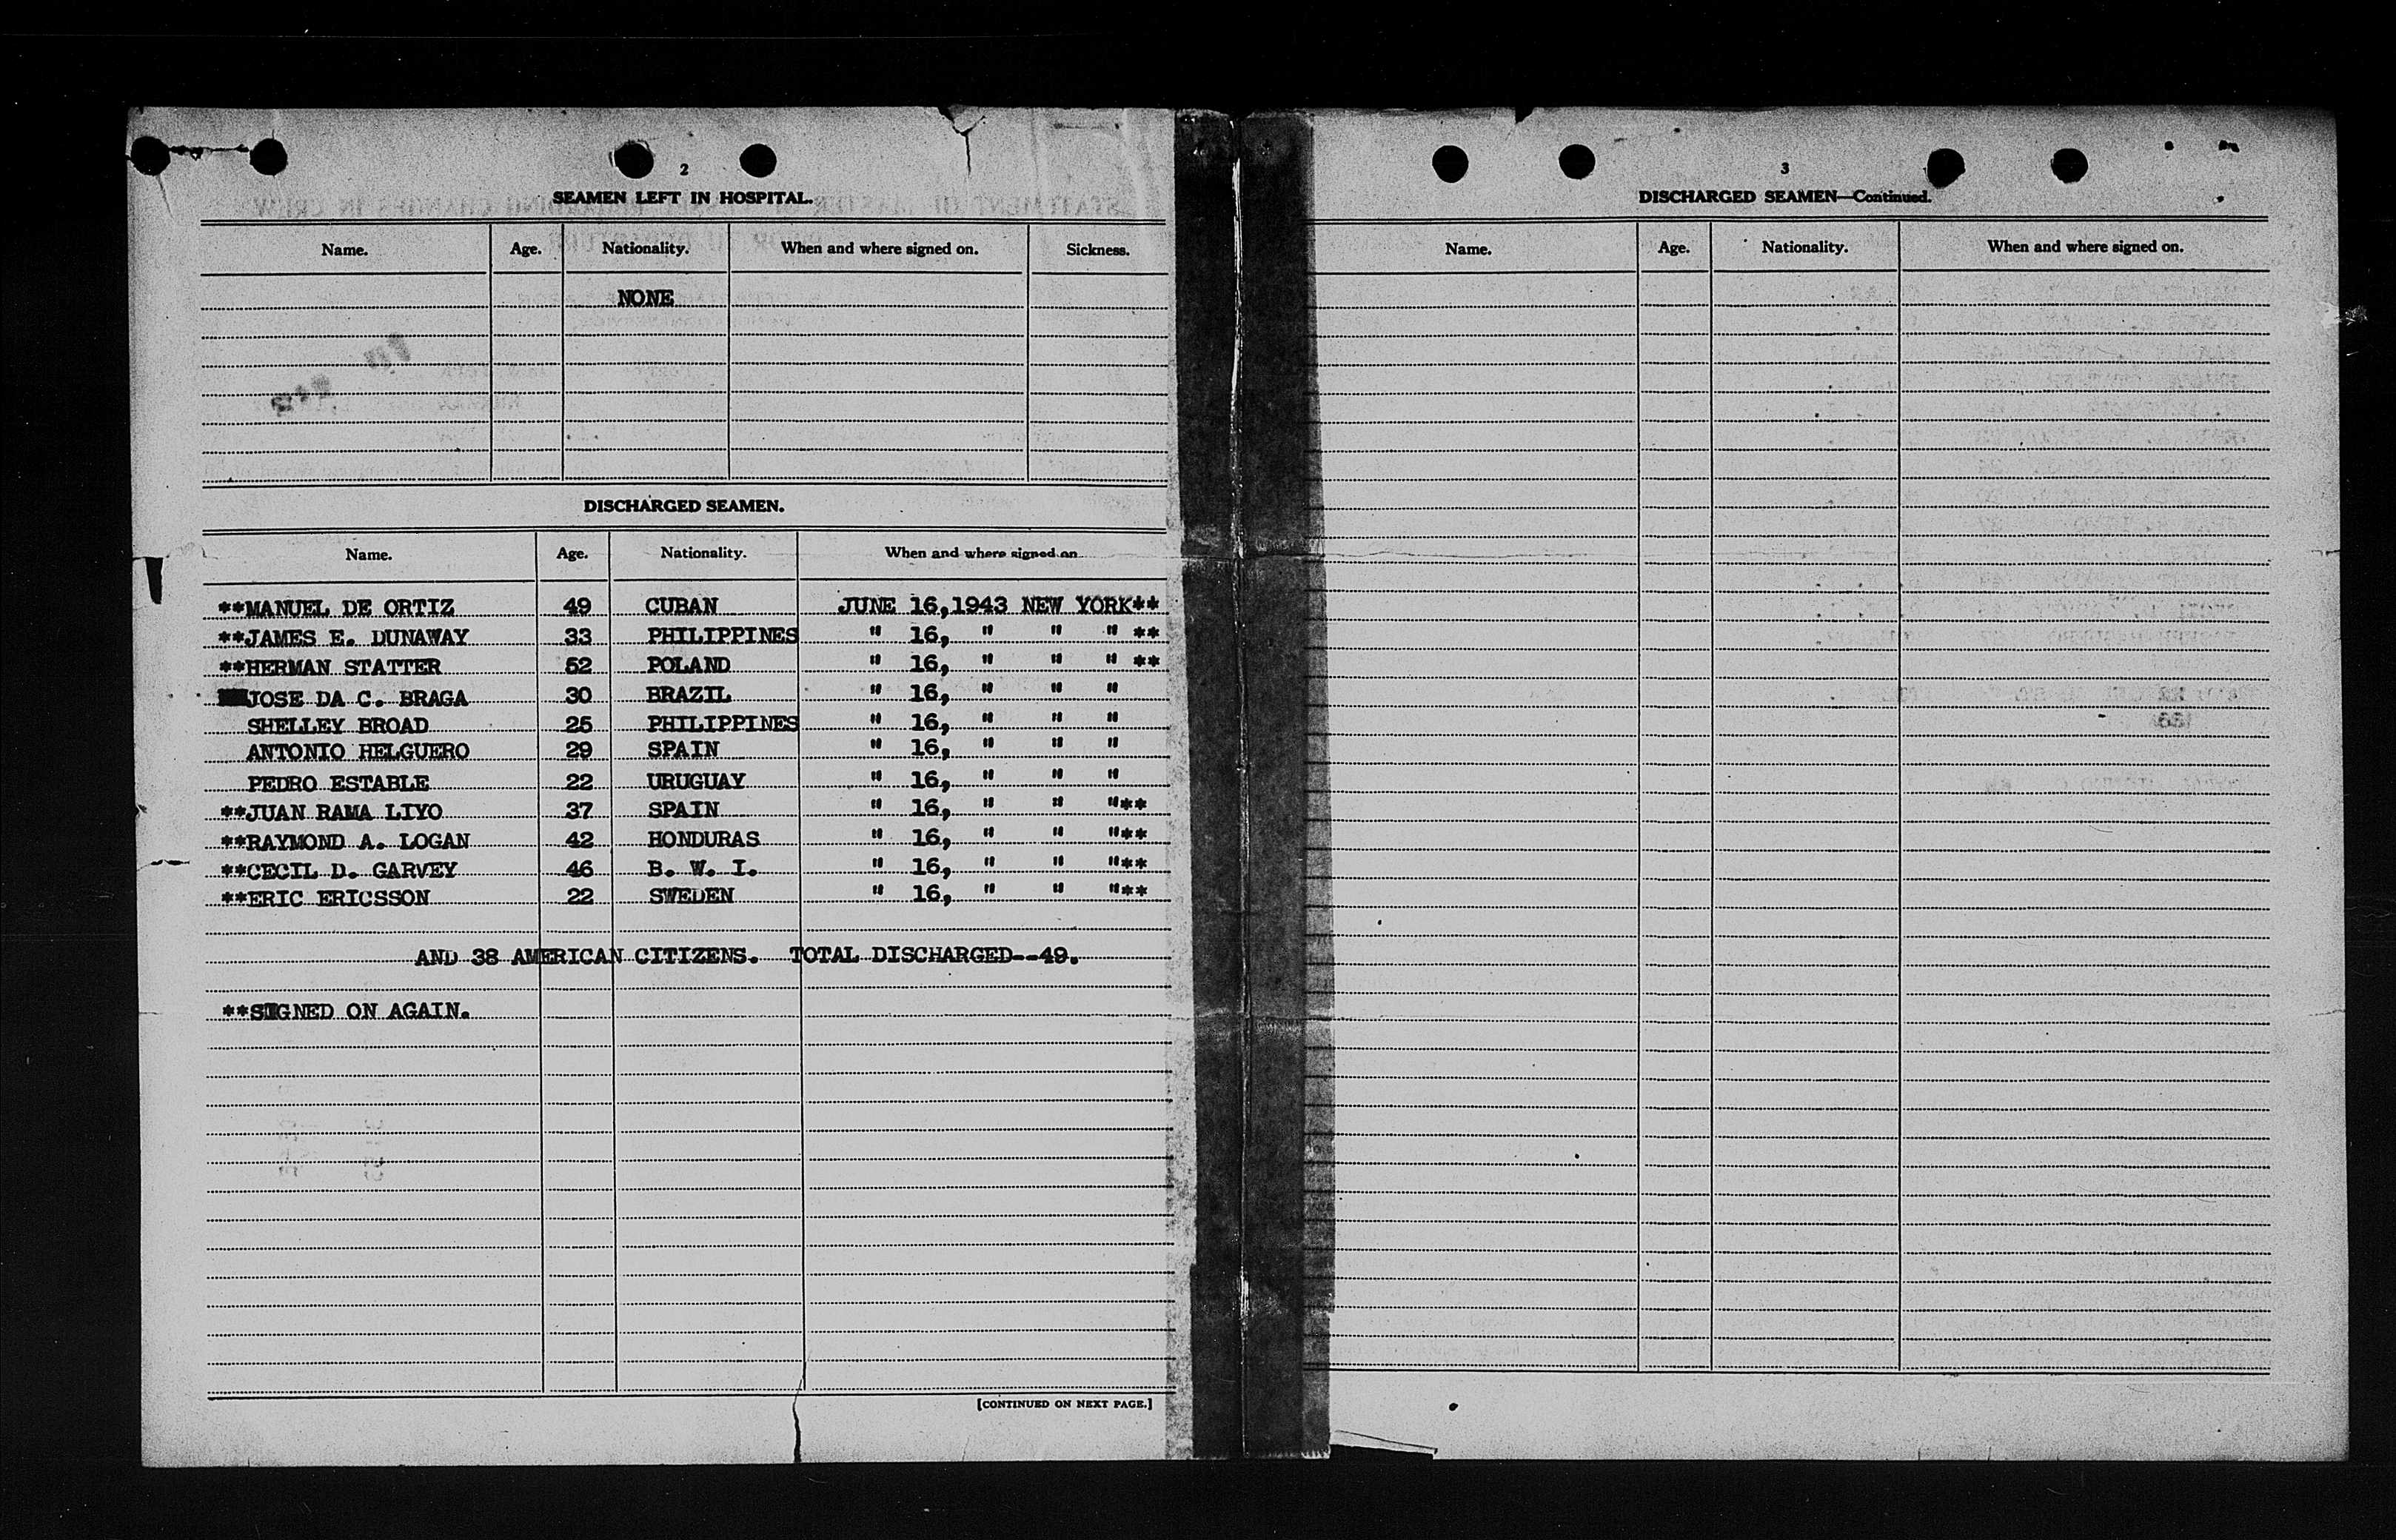 2
SEAMEN LEFT IN HOSPITAL.
Name. Age. Nationality. When and where signed on. Sickness.
NONE
DISCHARGED SEAMEN.
Name. Age. Nationality. When and where signed on
**MANUEL DE ORTIZ 49 CUBAN JUNE 16,1943 NEW YORK**
**JAMES E. DUNAWAY 33 PHILIPPINES " 16, " " " **
**HERMAN STATTER 52 POLAND " 16, " " " **
JOSE DA C. BRAGA 30 BRAZIL " 16, " " "
SHELLEY BROAD 25 PHILIPPINES " 16, " " "
ANTONIO HELGUERO 29 SPAIN " 16, " " "
PEDRO ESTABLE 22 URUGUAY " 16, " " "
**JUAN RAMA LIYO 37 SPAIN " 16, " " "**
**RAYMOND A. LOGAN 42 HONDURAS " 16, " " "**
**CECIL D. GARVEY 46 B. W. I. " 16, " " "**
**ERIC ERICSSON 22 SWEDEN " 16, " " "**
AND 38 AMERICAN CITIZENS. TOTAL DISCHARGED--49.
**SIGNED ON AGAIN.
[CONTINUED ON NEXT PAGE.]
3
DISCHARGED SEAMEN—Continued.
Name. Age. Nationality. When and where signed on.